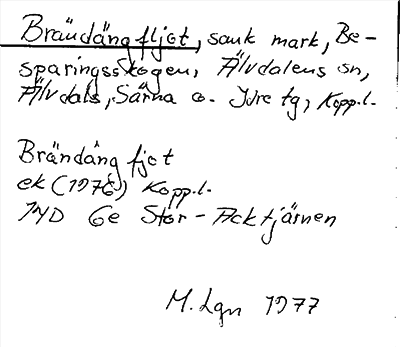 Brändängfljot, sank mark, Be-
sparingsskogen, Älvdalens sn,
Älvdals, Särna o. Idre tg, Kopp.l.
Brändängfjot
ek (1976) Kopp.l.
14D 6e Stor-Acktjärnen
M. Lgn 1977